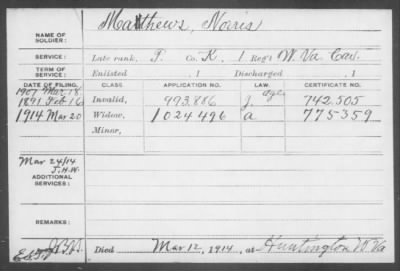 Matthews, Norris
NAME OF SOLDIER:
SERVICE: Late rank, P. Co. K, 1 Reg't W. Va Cav.
TERM OF SERVICE: Enlisted , 1 Discharged , 1
DATE OF FILING. CLASS. APPLICATION NO. LAW. CERTIFICATE NO.
1907 Mar 18
1891 Feb 16 Invalid, 993.886 g. 742.505
1914 Mar 20 Widow, 1024496 a 775359
Minor,
Mar 24/14
J.H.W.
ADDITIONAL SERVICES:
REMARKS:
Died Mar 12, 1914, at Huntington W. Va